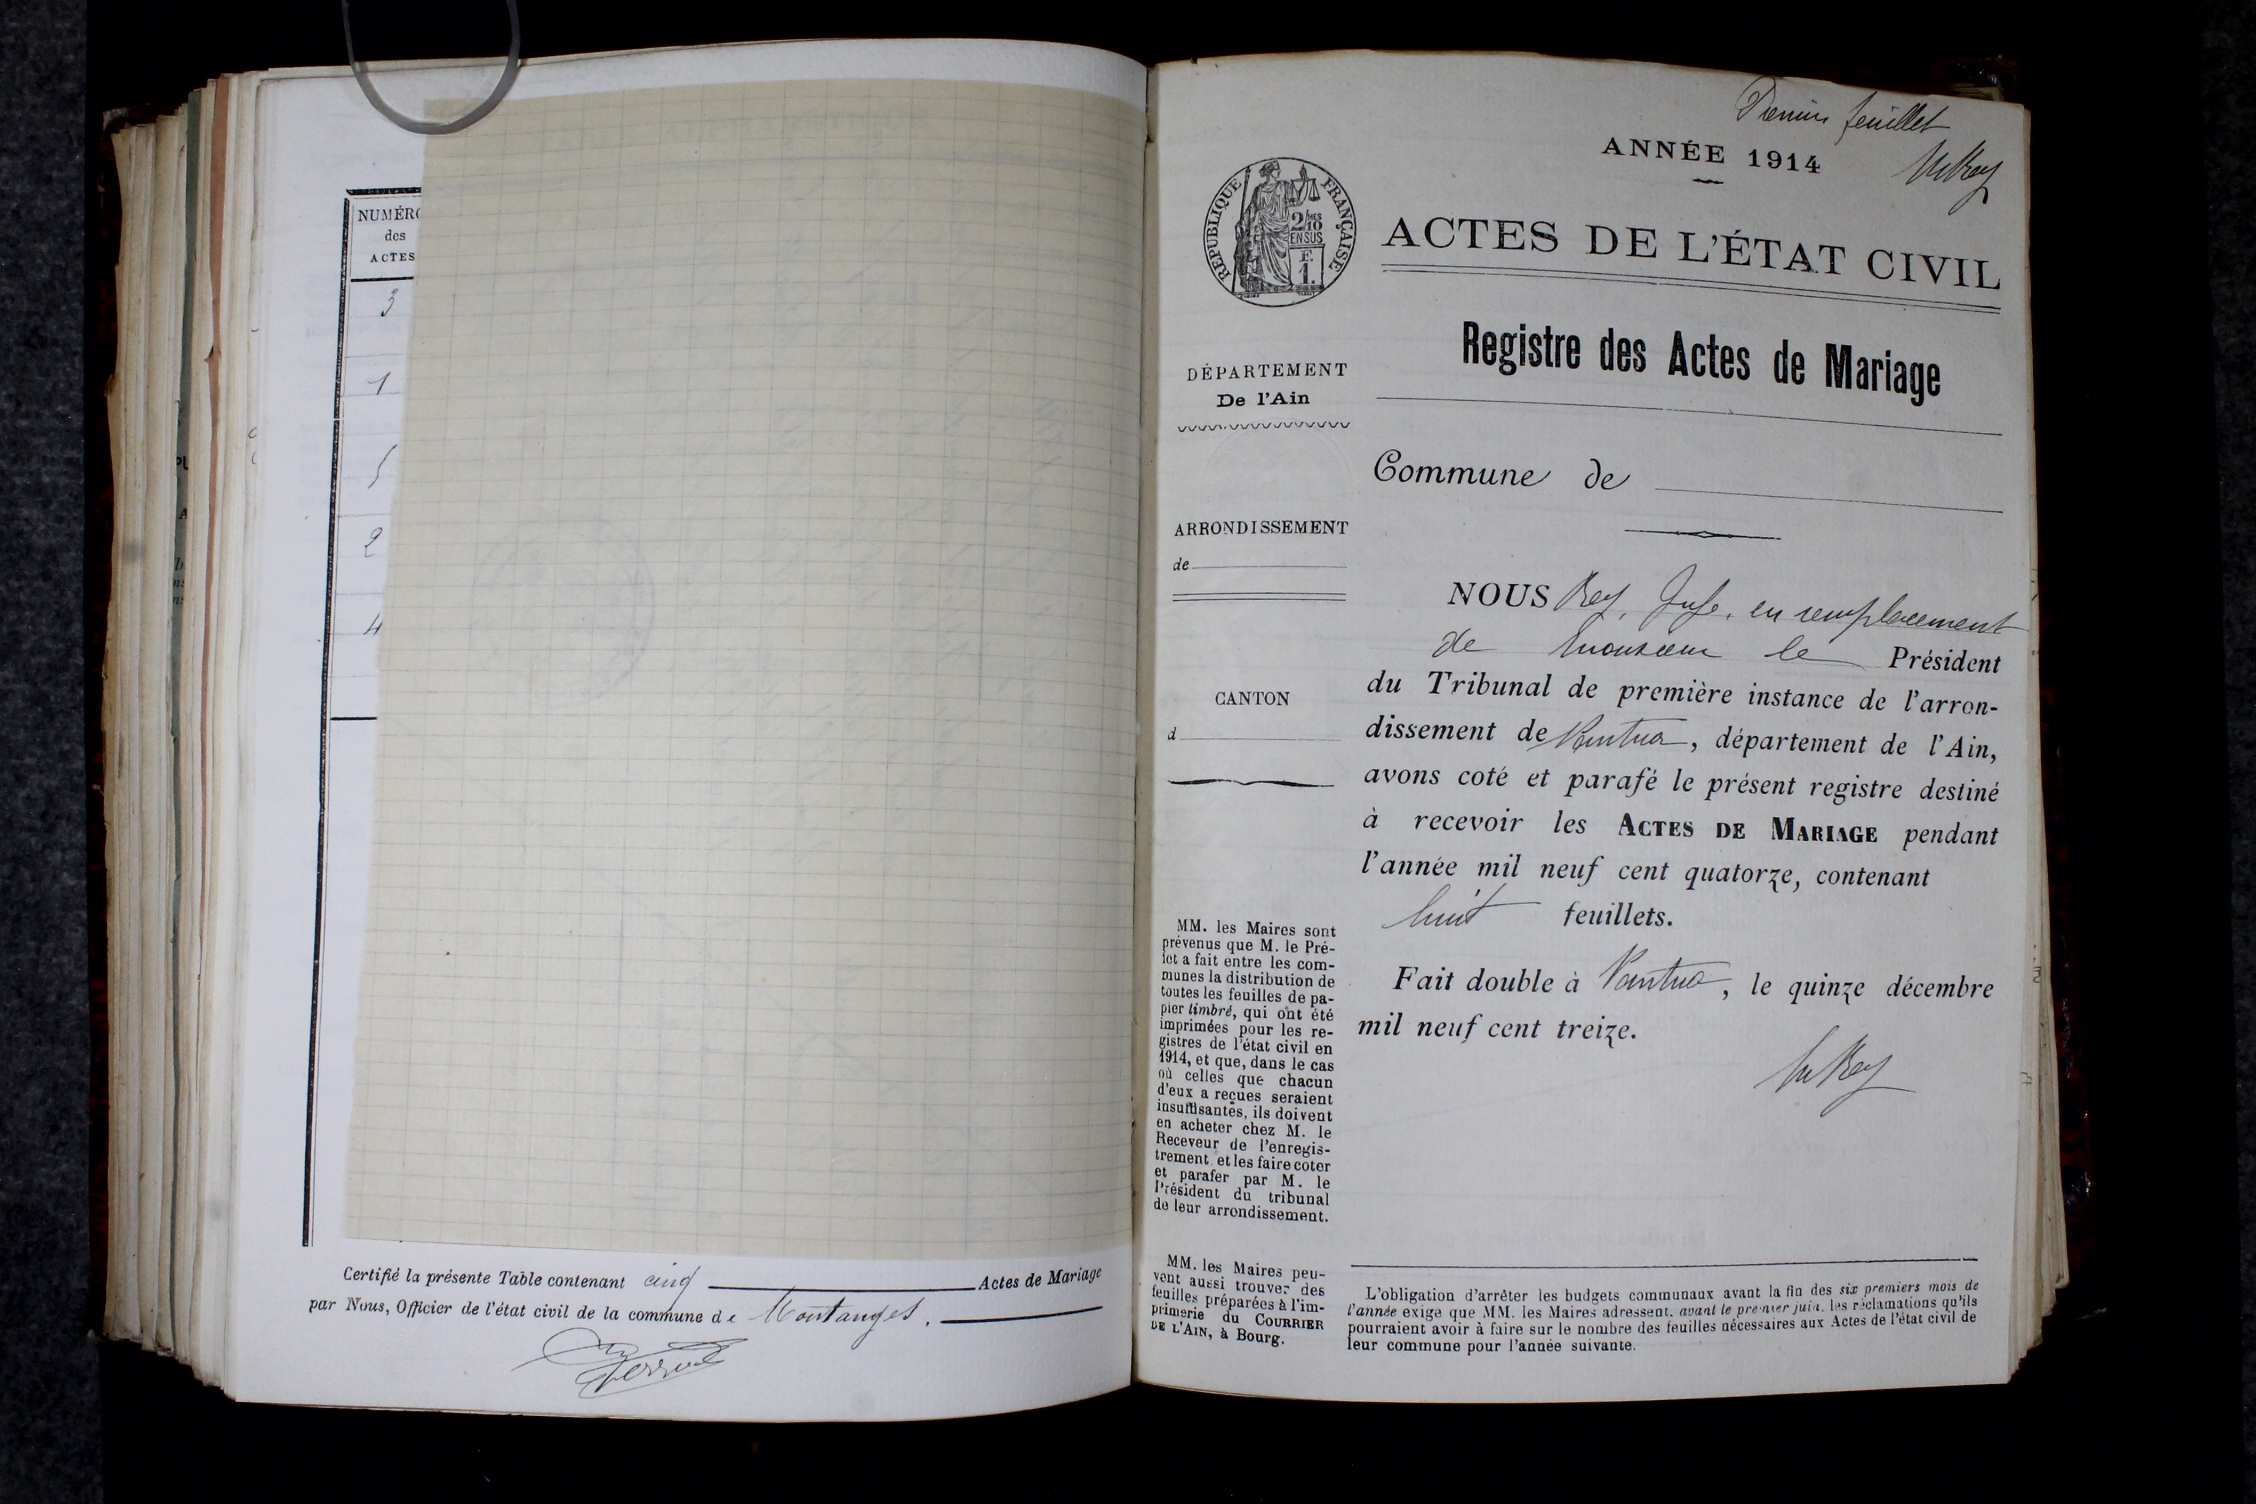 NUMÉRO
des
ACTES
3
1
5
2
4
Certifié la présente Table contenant cinq Actes de Mariage
par Nous, Officier de l'état civil de la commune de Montanges.
Premier feuillet
ANNÉE 1914
RÉPUBLIQUE FRANÇAISE
2/10 MES
EN SUS
F.
1.
ACTES DE L'ÉTAT CIVIL
Registre des Actes de Mariage
DÉPARTEMENT
De l'Ain
Commune de
ARRONDISSEMENT
de
CANTON
d
NOUS Rey, Juge, en remplacement
de Monsieur le Président
du Tribunal de première instance de l'arron-
dissement de Nantua, département de l'Ain,
avons coté et parafé le présent registre destiné
à recevoir les ACTES DE MARIAGE pendant
l'année mil neuf cent quatorze, contenant
huit feuillets.
Fait double à Nantua, le quinze décembre
mil neuf cent treize.
MM. les Maires sont
prévenus que M. le Pré-
fet a fait entre les com-
munes la distribution de
toutes les feuilles de pa-
pier timbré, qui ont été
imprimées pour les re-
gistres de l'état civil en
1914, et que, dans le cas
où celles que chacun
d'eux a reçues seraient
insuffisantes, ils doivent
en acheter chez M. le
Receveur de l'enregis-
trement et les faire coter
et parafer par M. le
Président du tribunal
de leur arrondissement.
MM. les Maires peu-
vent aussi trouver des
feuilles préparées à l'im-
primerie du COURRIER
DE L'AIN, à Bourg.
L'obligation d'arrêter les budgets communaux avant la fin des six premiers mois de
l'année exige que MM. les Maires adressent, avant le premier juin, les réclamations qu'ils
pourraient avoir à faire sur le nombre des feuilles nécessaires aux Actes de l'état civil de
leur commune pour l'année suivante.